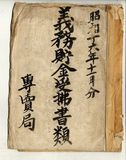 昭和十六年十一月分
義務貯金受払書類
専賣局